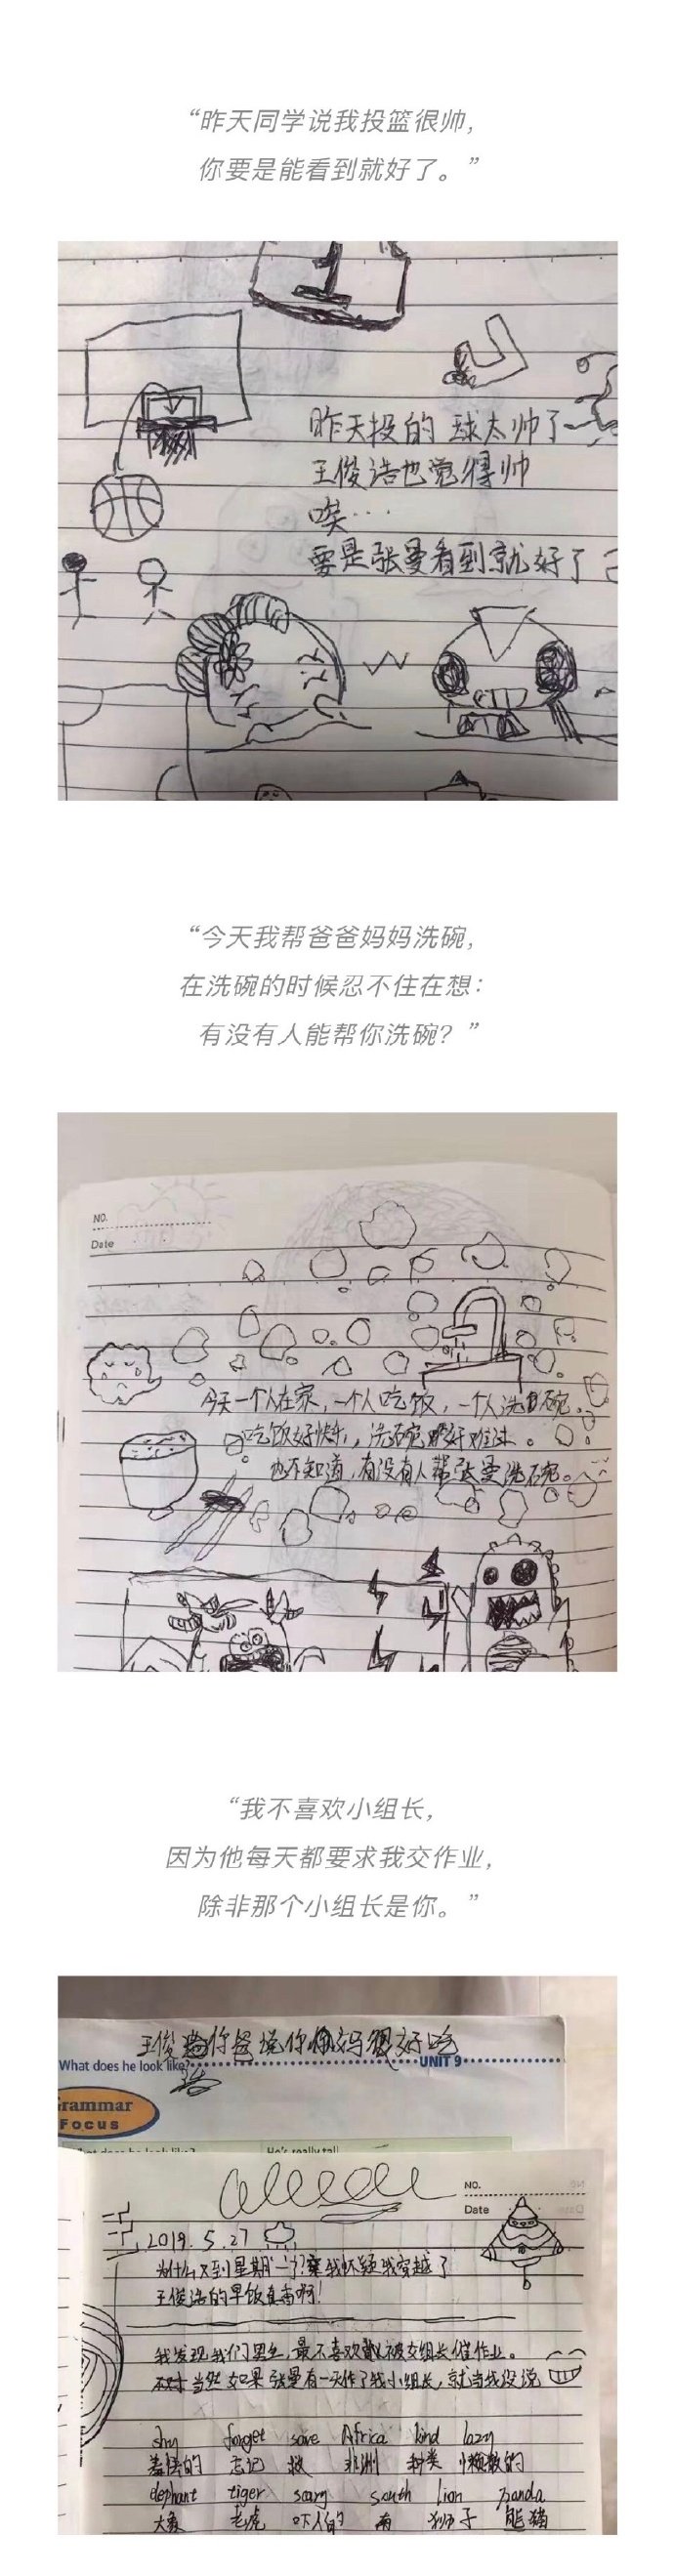 “昨天同学说我投篮很帅，
你要是能看到就好了。”
昨天投的球太帅了
王俊浩也觉得帅
唉…
要是张曼看到就好了
“今天我帮爸爸妈妈洗碗，
在洗碗的时候忍不住在想：
有没有人能帮你洗碗？”
NO.
Date
今天一个人在家，一个人吃饭，一个人洗碗。
吃饭好快乐，洗碗好难过。
也不知道，有没有人帮张曼洗碗。
“我不喜欢小组长，
因为他每天都要求我交作业，
除非那个小组长是你。”
王俊 你爸说你妈很好吃
浩
What does he look like?
UNIT 9
Grammar
Focus
What does he look like?
He's really tall
NO.
Date
2019.5.27
为什么又到星期一了？我怀疑我穿越了
王俊浩的早饭真香啊！
我发现我们男生，最不喜欢被女组长催作业。
不对当然如果张曼有一天作了我小组长，就当我没说
shy forget save Africa kind lazy
羞怯的 忘记 救 非洲 种类 懒散的
elephant tiger scary south lion panda
大象 老虎 吓人的 南 狮子 熊猫